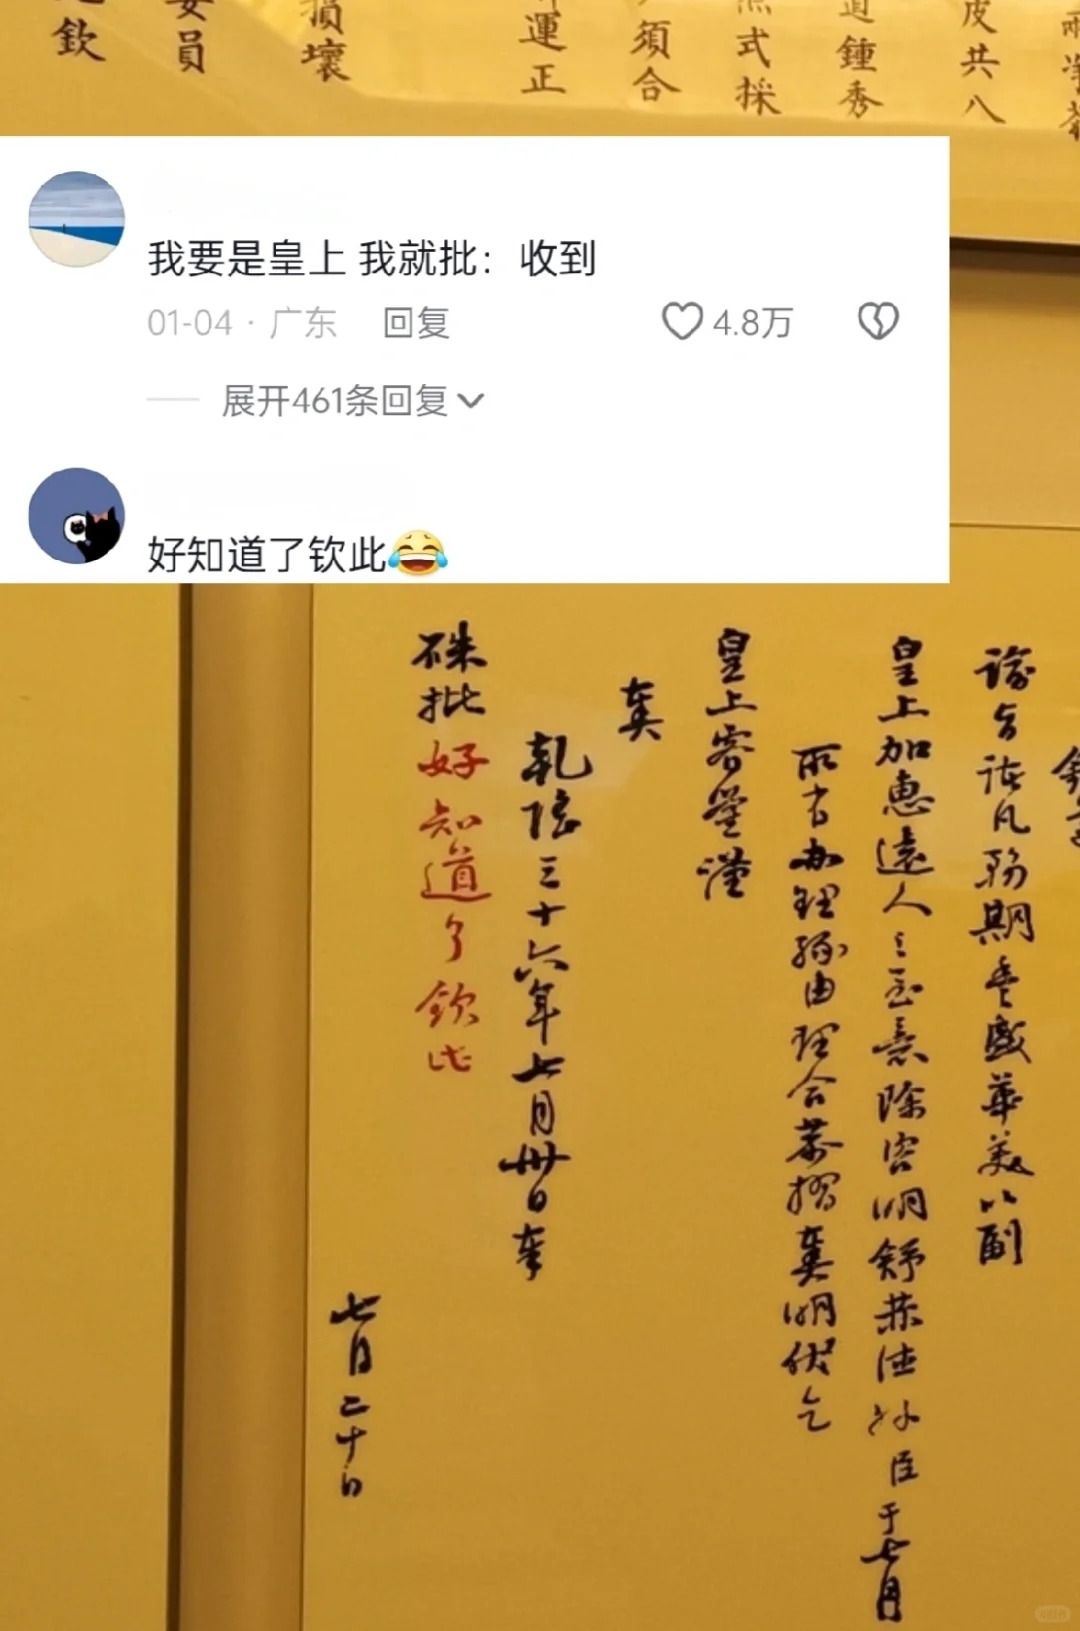 雨淨
皮共八
道鍾秀
式採
須合
運正
損壞
員
欽
我要是皇上 我就批：收到
01-04 · 广东 回复 4.8万
展开461条回复
好知道了钦此😂
諭旨諸凡務期豊盛華美以副
皇上加惠遠人之至意除咨明舒赫德外臣于七月
所有办理緣由理合恭摺奏明伏乞
皇上睿鑒謹
奏
乾隆三十六年七月卅日奉
硃批好知道了欽此
七月二十日